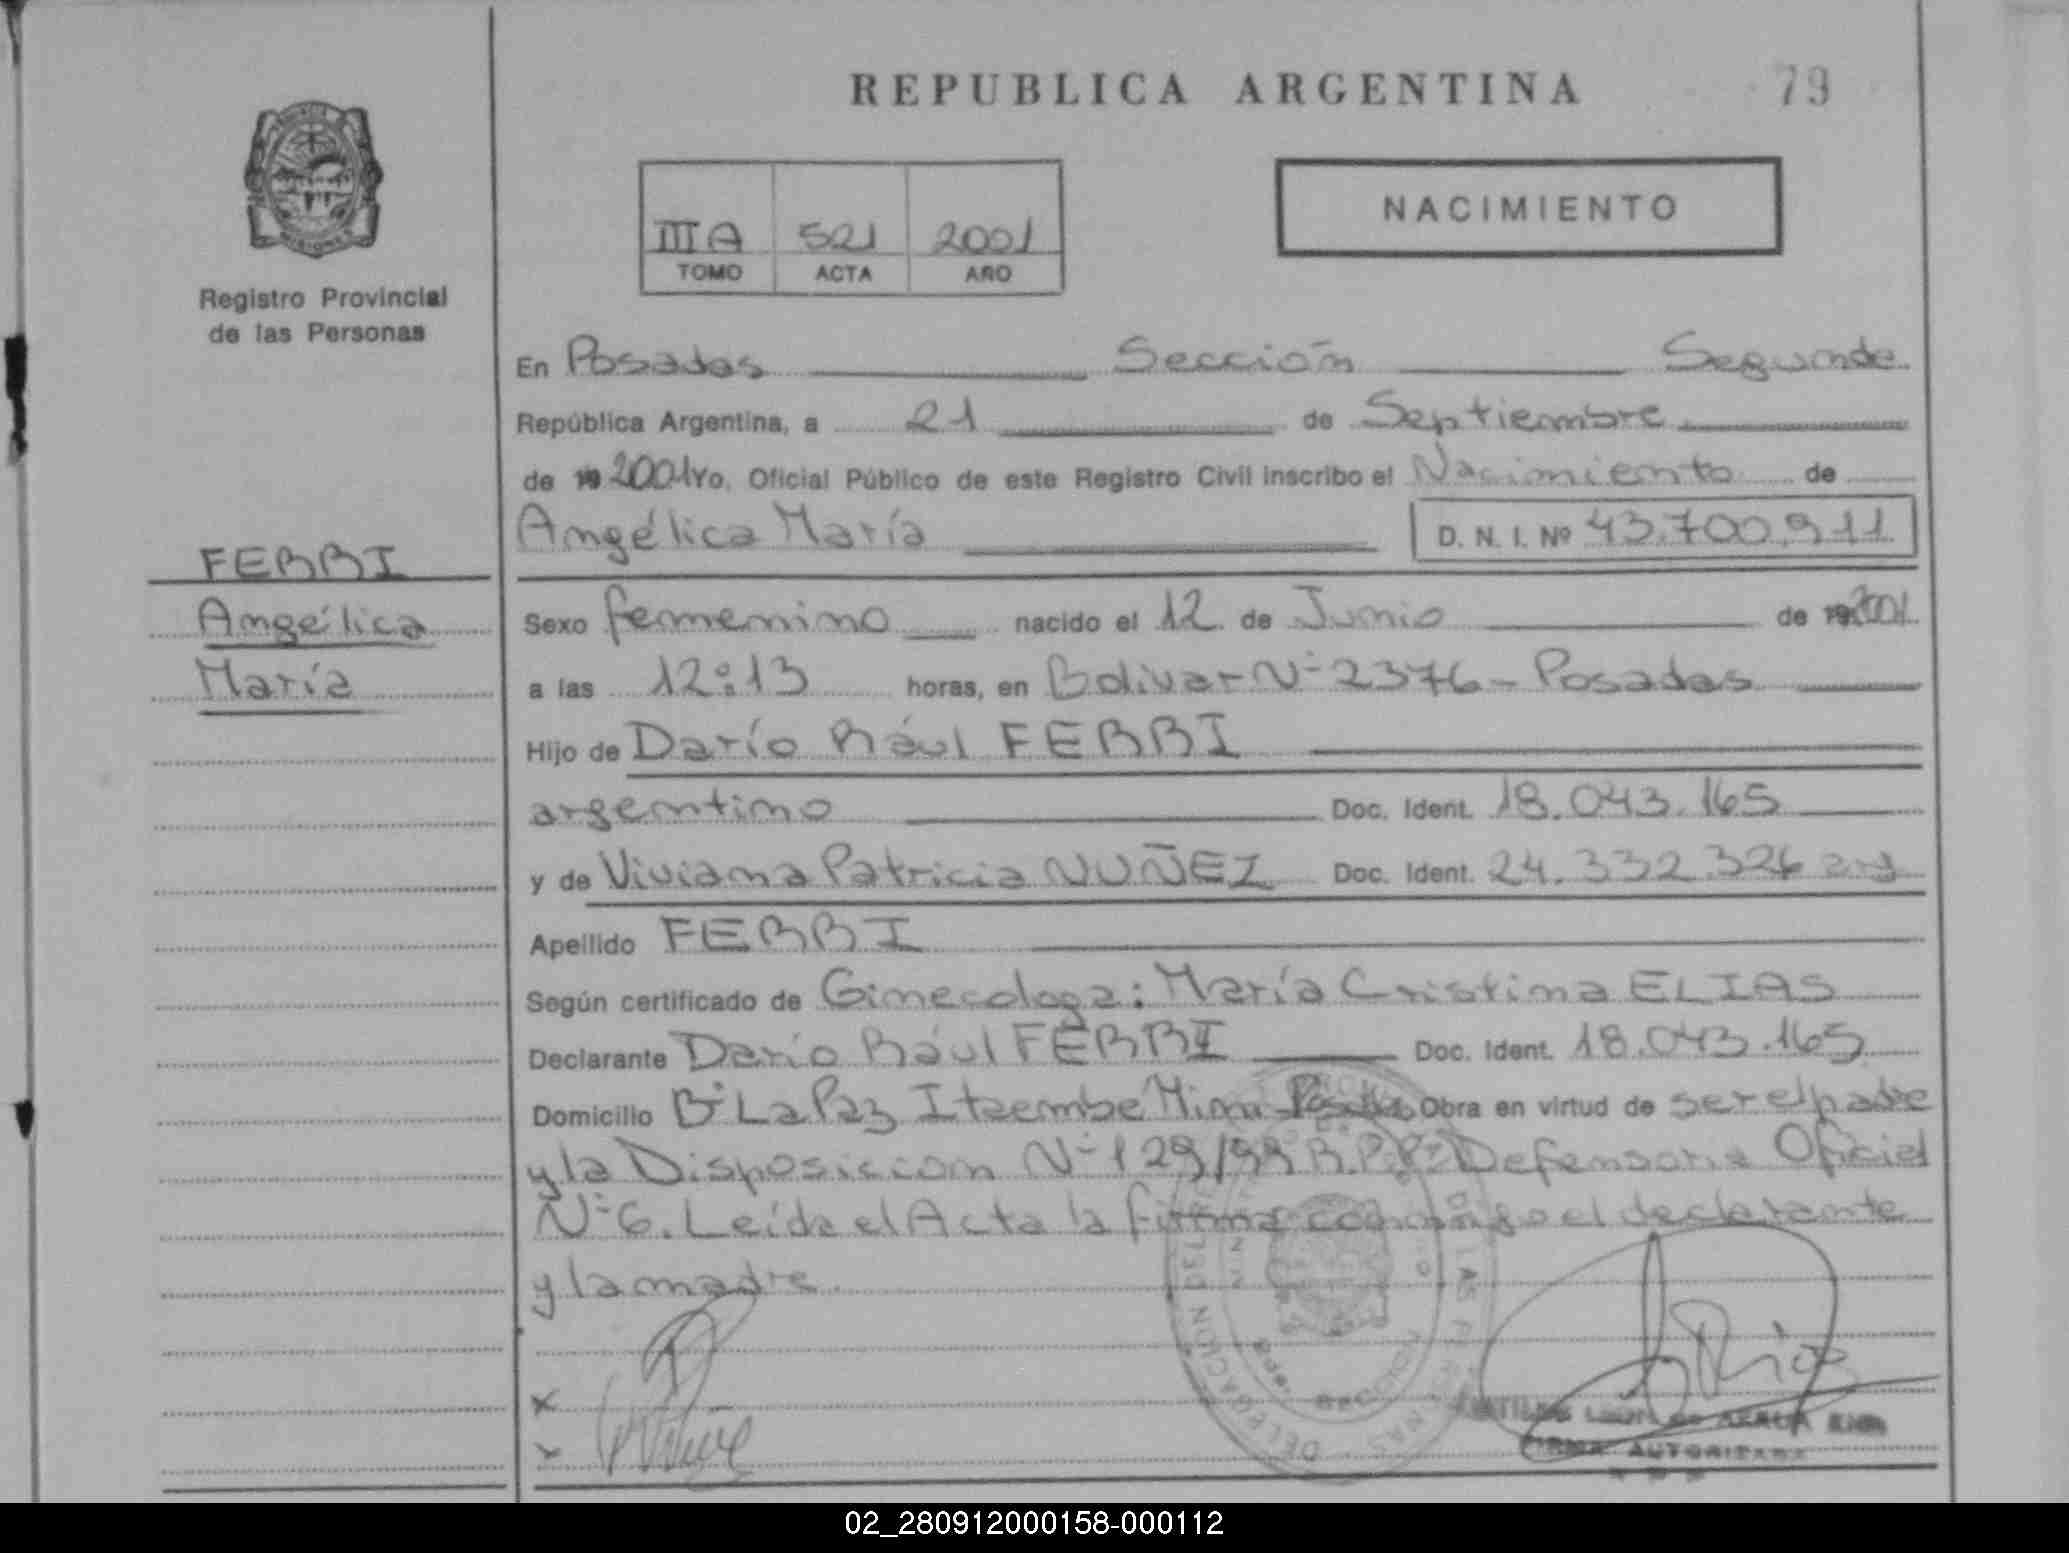 REPUBLICA ARGENTINA
79
NACIMIENTO
III A 521 2001
TOMO ACTA AÑO
Registro Provincial
de las Personas
En Posadas Sección Segunda
República Argentina, a 21 de Septiembre
de 19 2001 Yo, Oficial Público de este Registro Civil inscribo el Nacimiento de
Angélica María D. N. I. Nº 43.700.911
FERRI
Angélica
María
Sexo femenino nacido el 12 de Junio de 19 2001
a las 12:13 horas, en Bolivar Nº 2376 - Posadas
Hijo de Darío Rául FERRI
argentino Doc. Ident. 18.043.165
y de Viviana Patricia NUÑEZ Doc. Ident. 24.332.326 arg
Apellido FERRI
Según certificado de Ginecologa: María Cristina ELIAS
Declarante Darío Rául FERRI Doc. Ident. 18.043.165
Domicilio Bº La Paz Itaembe Mini - Posadas Obra en virtud de ser el padre
y la Disposiccion Nº 129/99 R.P.P. Defensoria Oficial
Nº 6. Leída el Acta la firma conmigo el declarante
y la madre.
X
Rios
FIRMA AUTORIZADA
DELEGACION
02_280912000158-000112